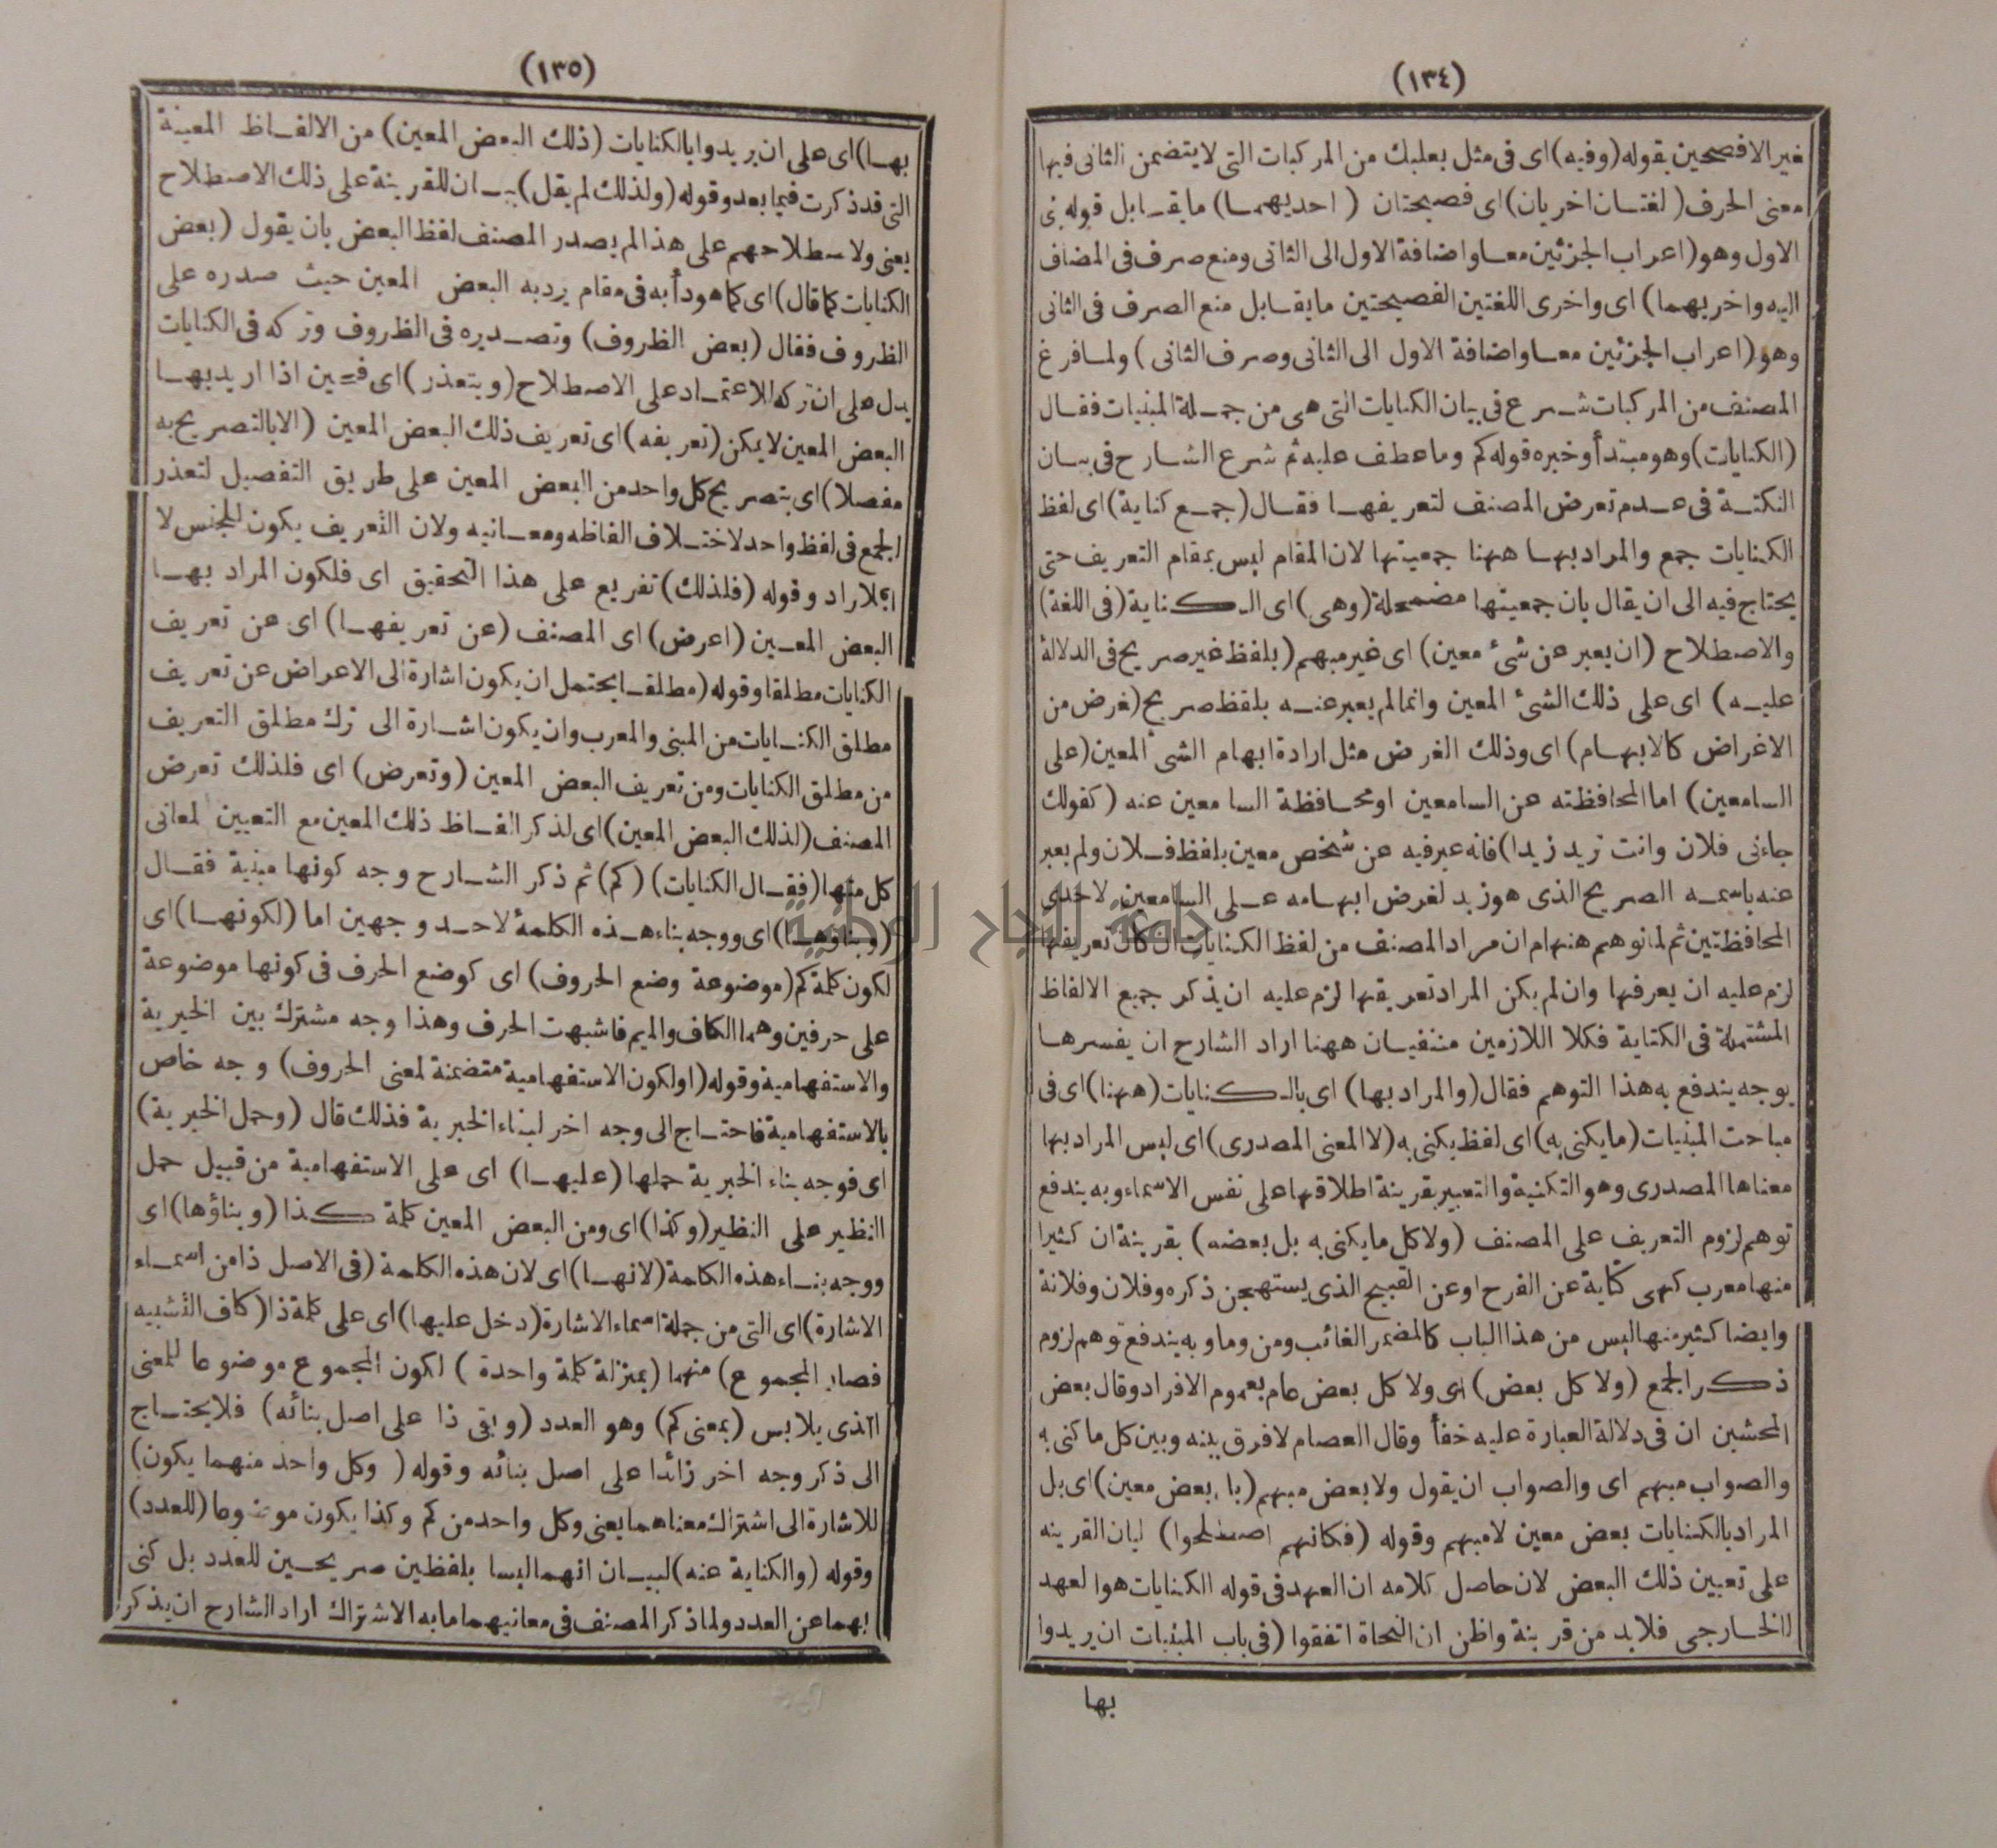 (١٣٤)
غير الافصحين بقوله (وفيه) اى فى مثل بعلبك من المركبات التى لا يتضمن الثانى فيها
معنى الحرف (لغتان اخريان) اى فصيحتان (احديهما) ما يقابل قوله بنى
الاول وهو (اعراب الجزئين معا واضافة الاول الى الثانى ومنع صرف فى المضاف
اليه واخريهما) اى واخرى اللغتين الفصيحتين ما يقابل منع الصرف فى الثانى
وهو (اعراب الجزئين معا واضافة الاول الى الثانى وصرف الثانى) ولما فرغ
المصنف من المركبات شرع فى بيان الكنايات التى هى من جملة المبنيات فقال
(الكنايات) وهو مبتدأ وخبره قوله كم وما عطف عليه ثم شرع الشارح فى بيان
النكتة فى عدم تعرض المصنف لتعريفها فقال (جمع كناية) اى لفظ
الكنايات جمع والمراد بها ههنا جمعيتها لان المقام ليس بمقام التعريف حتى
يحتاج فيه الى ان يقال بان جمعيتها مضمحلة (وهى) اى الكناية (فى اللغة)
والاصطلاح (ان يعبر عن شئ معين) اى غير مبهم (بلفظ غير صريح فى الدلالة
عليه) اى على ذلك الشئ المعين وانما لم يعبر عنه بلفظ صريح (لغرض من
الاغراض كالابهام) اى وذلك الغرض مثل ارادة ابهام الشئ المعين (على
السامعين) اما لمحافظته عن السامعين او محافظة السامعين عنه (كقولك
جاءنى فلان وانت تريد زيدا) فانه عبر فيه عن شخص معين بلفظ فلان ولم يعبر
عنه باسمه الصريح الذى هو زيد لغرض ابهامه على السامعين لاحدى
المحافظتين ثم لما توهم ههنا من ان مراد المصنف من لفظ الكنايات ان كان تعريفها
لزم عليه ان يعرفها وان لم يكن المراد تعريفها لزم عليه ان يذكر جميع الالفاظ
المشتملة فى الكناية فكلا اللازمين منتفيان ههنا اراد الشارح ان يفسرها
بوجه يندفع به هذا التوهم فقال (والمراد بها) اى بالكنايات (ههنا) اى فى
مباحث المبنيات (ما يكنى به) اى لفظ يكنى به (لا المعنى المصدرى) اى ليس المراد بها
معناها المصدرى وهو التكنية والتعبير بقرينة اطلاقها على نفس الاسماء وبه يندفع
توهم لزوم التعريف على المصنف (ولا كل ما يكنى به بل بعضه) بقرينة ان كثيرا
منها معرب كهى كناية عن الفرج او عن القبيح الذى يستهجن ذكره وفلان وفلانة
وايضا كثير منها ليس من هذا الباب كالمضمر الغائب ومن وما وبه يندفع توهم لزوم
ذكر الجمع (ولا كل بعض) اى ولا كل بعض عام بعموم الافراد وقال بعض
المحشين ان فى دلالة العبارة عليه خفأ وقال العصام لا فرق بينه وبين كل ما كنى به
والصواب مبهم اى والصواب ان يقول ولا بعض مبهم (بل بعض معين) اى بل
المراد بالكنايات بعض معين لا مبهم وقوله (فكانهم اصطلحوا) لبيان القرينه
على تعيين ذلك البعض لان حاصل كلامه ان العهد فى قوله الكنايات هو العهد
الخارجى فلابد من قرينة واظن ان النحاة اتفقوا (فى باب المبنيات ان يريدوا
بها
(١٣٥)
بها) اى على ان يريدوا بالكنايات (ذلك البعض المعين) من الالفاظ المعينة
التى قد ذكرت فيما بعد وقوله (ولذلك لم يقل) بيان للقرينة على ذلك الاصطلاح
يعنى ولاصطلاحهم على هذا لم يصدر المصنف لفظ البعض بان يقول (بعض
الكنايات كما قال) اى كما هو دأبه فى مقام يريد به البعض المعين حيث صدره على
الظروف فقال (بعض الظروف) وتصديره فى الظروف وتركه فى الكنايات
يدل على ان تركه للاعتماد على الاصطلاح (ويتعذر) اى فحين اذا اريد بها
البعض المعين لا يمكن (تعريفه) اى تعريف ذلك البعض المعين (الا بالتصريح به
مفصلا) اى بتصريح كل واحد من البعض المعين على طريق التفصيل لتعذر
الجمع فى لفظ واحد لاختلاف الفاظه ومعانيه ولان التعريف يكون للجنس لا
للافراد وقوله (فلذلك) تفريع على هذا التحقيق اى فلكون المراد بها
البعض المعين (اعرض) اى المصنف (عن تعريفها) اى عن تعريف
الكنايات مطلقا وقوله (مطلقا) يحتمل ان يكون اشارة الى الاعراض عن تعريف
مطلق الكنايات من المبنى والمعرب وان يكون اشارة الى ترك مطلق التعريف
من مطلق الكنايات ومن تعريف البعض المعين (وتعرض) اى فلذلك تعرض
المصنف (لذلك البعض المعين) اى لذكر الفاظ ذلك المعين مع التعيين لمعانى
كل منها (فقال الكنايات) (كم) ثم ذكر الشارح وجه كونها مبنية فقال
(وبناؤها) اى ووجه بناء هذه الكلمة لاحد وجهين اما (لكونها) اى
لكون كلمة كم (موضوعة وضع الحروف) اى كوضع الحرف فى كونها موضوعة
على حرفين وهما الكاف والميم فاشبهت الحرف وهذا وجه مشترك بين الخبرية
والاستفهامية وقوله (او لكون الاستفهامية متضمنة لمعنى الحروف) وجه خاص
بالاستفهامية فاحتاج الى وجه اخر لبناء الخبرية فذلك قال (وحمل الخبرية)
اى فوجه بناء الخبرية حملها (عليها) اى على الاستفهامية من قبيل حمل
النظير على النظير (وكذا) اى ومن البعض المعين كلمة كذا (وبناؤها) اى
ووجه بناء هذه الكلمة (لانها) اى لان هذه الكلمة (فى الاصل ذا من اسماء
الاشارة) اى التى من جملة اسماء الاشارة (دخل عليها) اى على كلمة ذا (كاف التشبيه
فصار المجموع) منهما (بمنزلة كلمة واحدة) لكون المجموع موضوعا للمعنى
الذى يلابس (بمعنى كم) وهو العدد (وبقى ذا على اصل بنائه) فلا يحتاج
الى ذكر وجه اخر زائدا على اصل بنائه وقوله (وكل واحد منهما يكون)
للاشارة الى اشتراك معناهما يعنى وكل واحد من كم وكذا يكون موضوعا (للعدد)
وقوله (والكناية عنه) لبيان انهما ليسا بلفظين صريحين للعدد بل كنى
بهما عن العدد ولما ذكر المصنف فى معانيهما ما به الاشتراك اراد الشارح ان يذكر
جامعة النجاح الوطنية